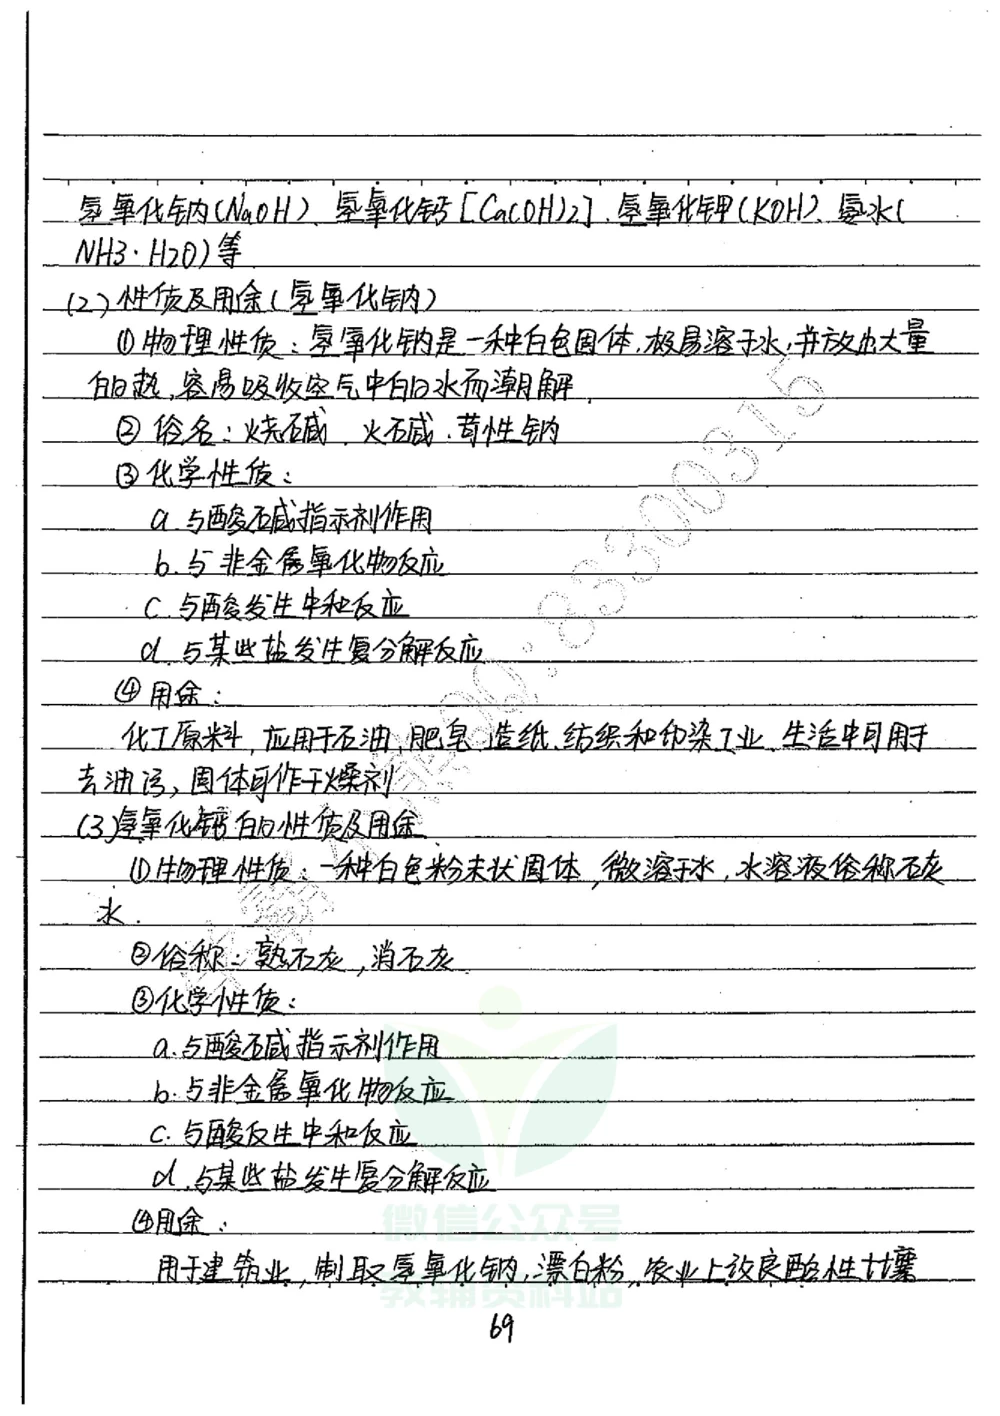 氢氧化钠(NaOH)、氢氧化钙[Ca(OH)2]、氢氧化钾(KOH)、氨水(
NH3·H2O)等
(2)性质及用途(氢氧化钠)
①物理性质:氢氧化钠是一种白色固体,极易溶于水,并放出大量
的热,容易吸收空气中的水而潮解.
②俗名:烧碱、火碱、苛性钠
③化学性质:
a.与酸碱指示剂作用
b.与非金属氧化物反应
c.与酸发生中和反应
d.与某些盐发生复分解反应
④用途:
化工原料,应用于石油、肥皂、造纸、纺织和印染工业、生活中可用于
去油污,固体可作干燥剂
(3)氢氧化钙的性质及用途
①物理性质:一种白色粉末状固体,微溶于水,水溶液俗称石灰
水.
②俗称:熟石灰,消石灰
③化学性质:
a.与酸碱指示剂作用
b.与非金属氧化物反应
c.与酸反生中和反应
d.与某些盐发生复分解反应
④用途:
用于建筑业,制取氢氧化钠,漂白粉,农业上改良酸性土壤
69
:8330031 5
微信公众号
教辅资料站